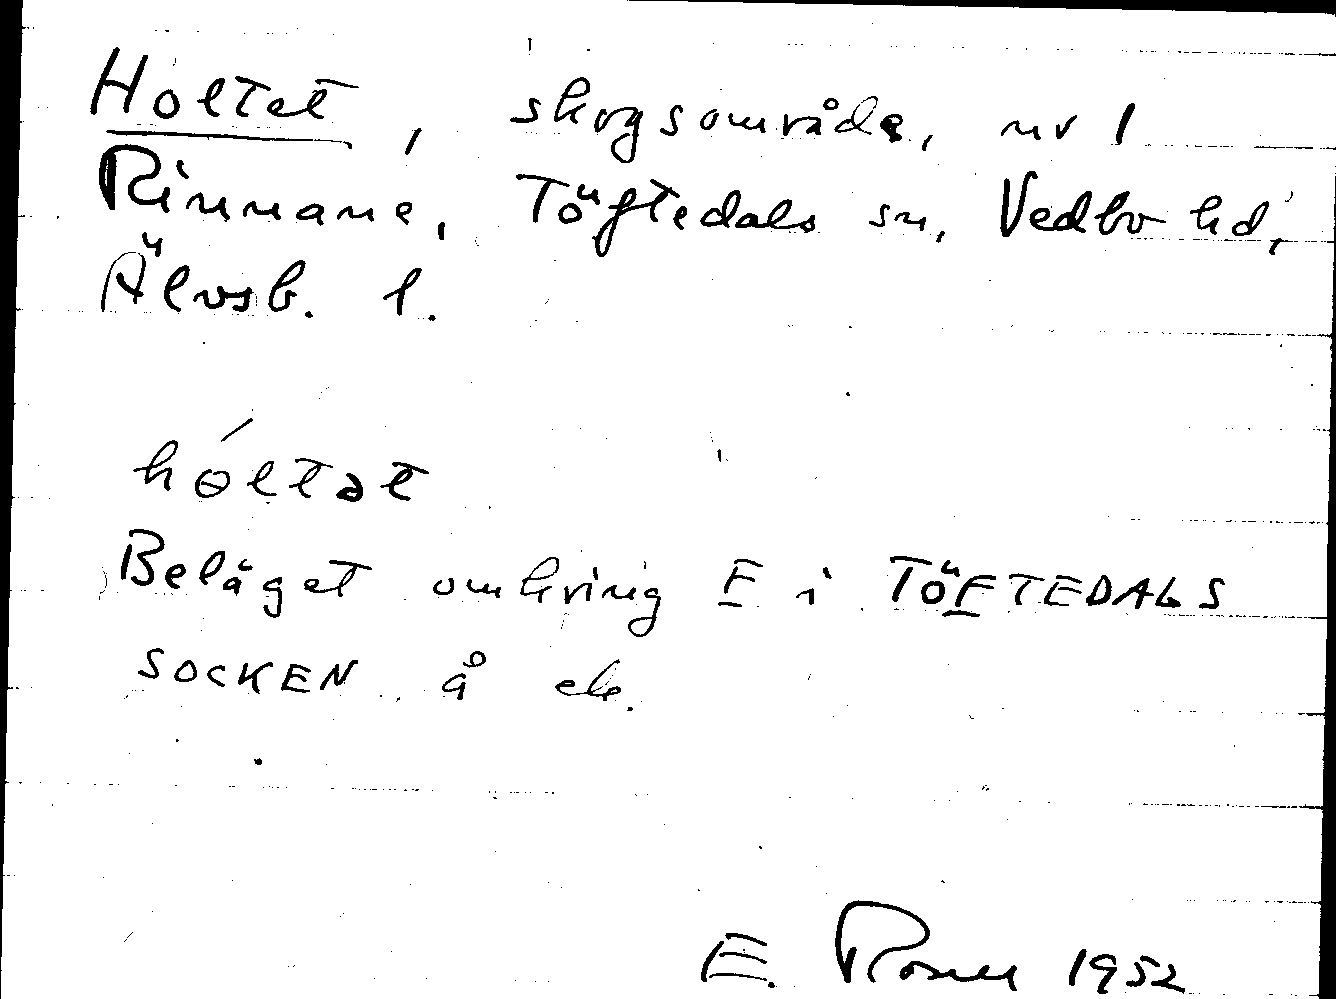 Holtet, skogsområde, nr 1
Rinnane, Töftedals sn, Vedbo hd,
Älvsb. l.
hóltət
Beläget omkring F i TÖFTEDALS
SOCKEN å ek.
E. Rosell 1952